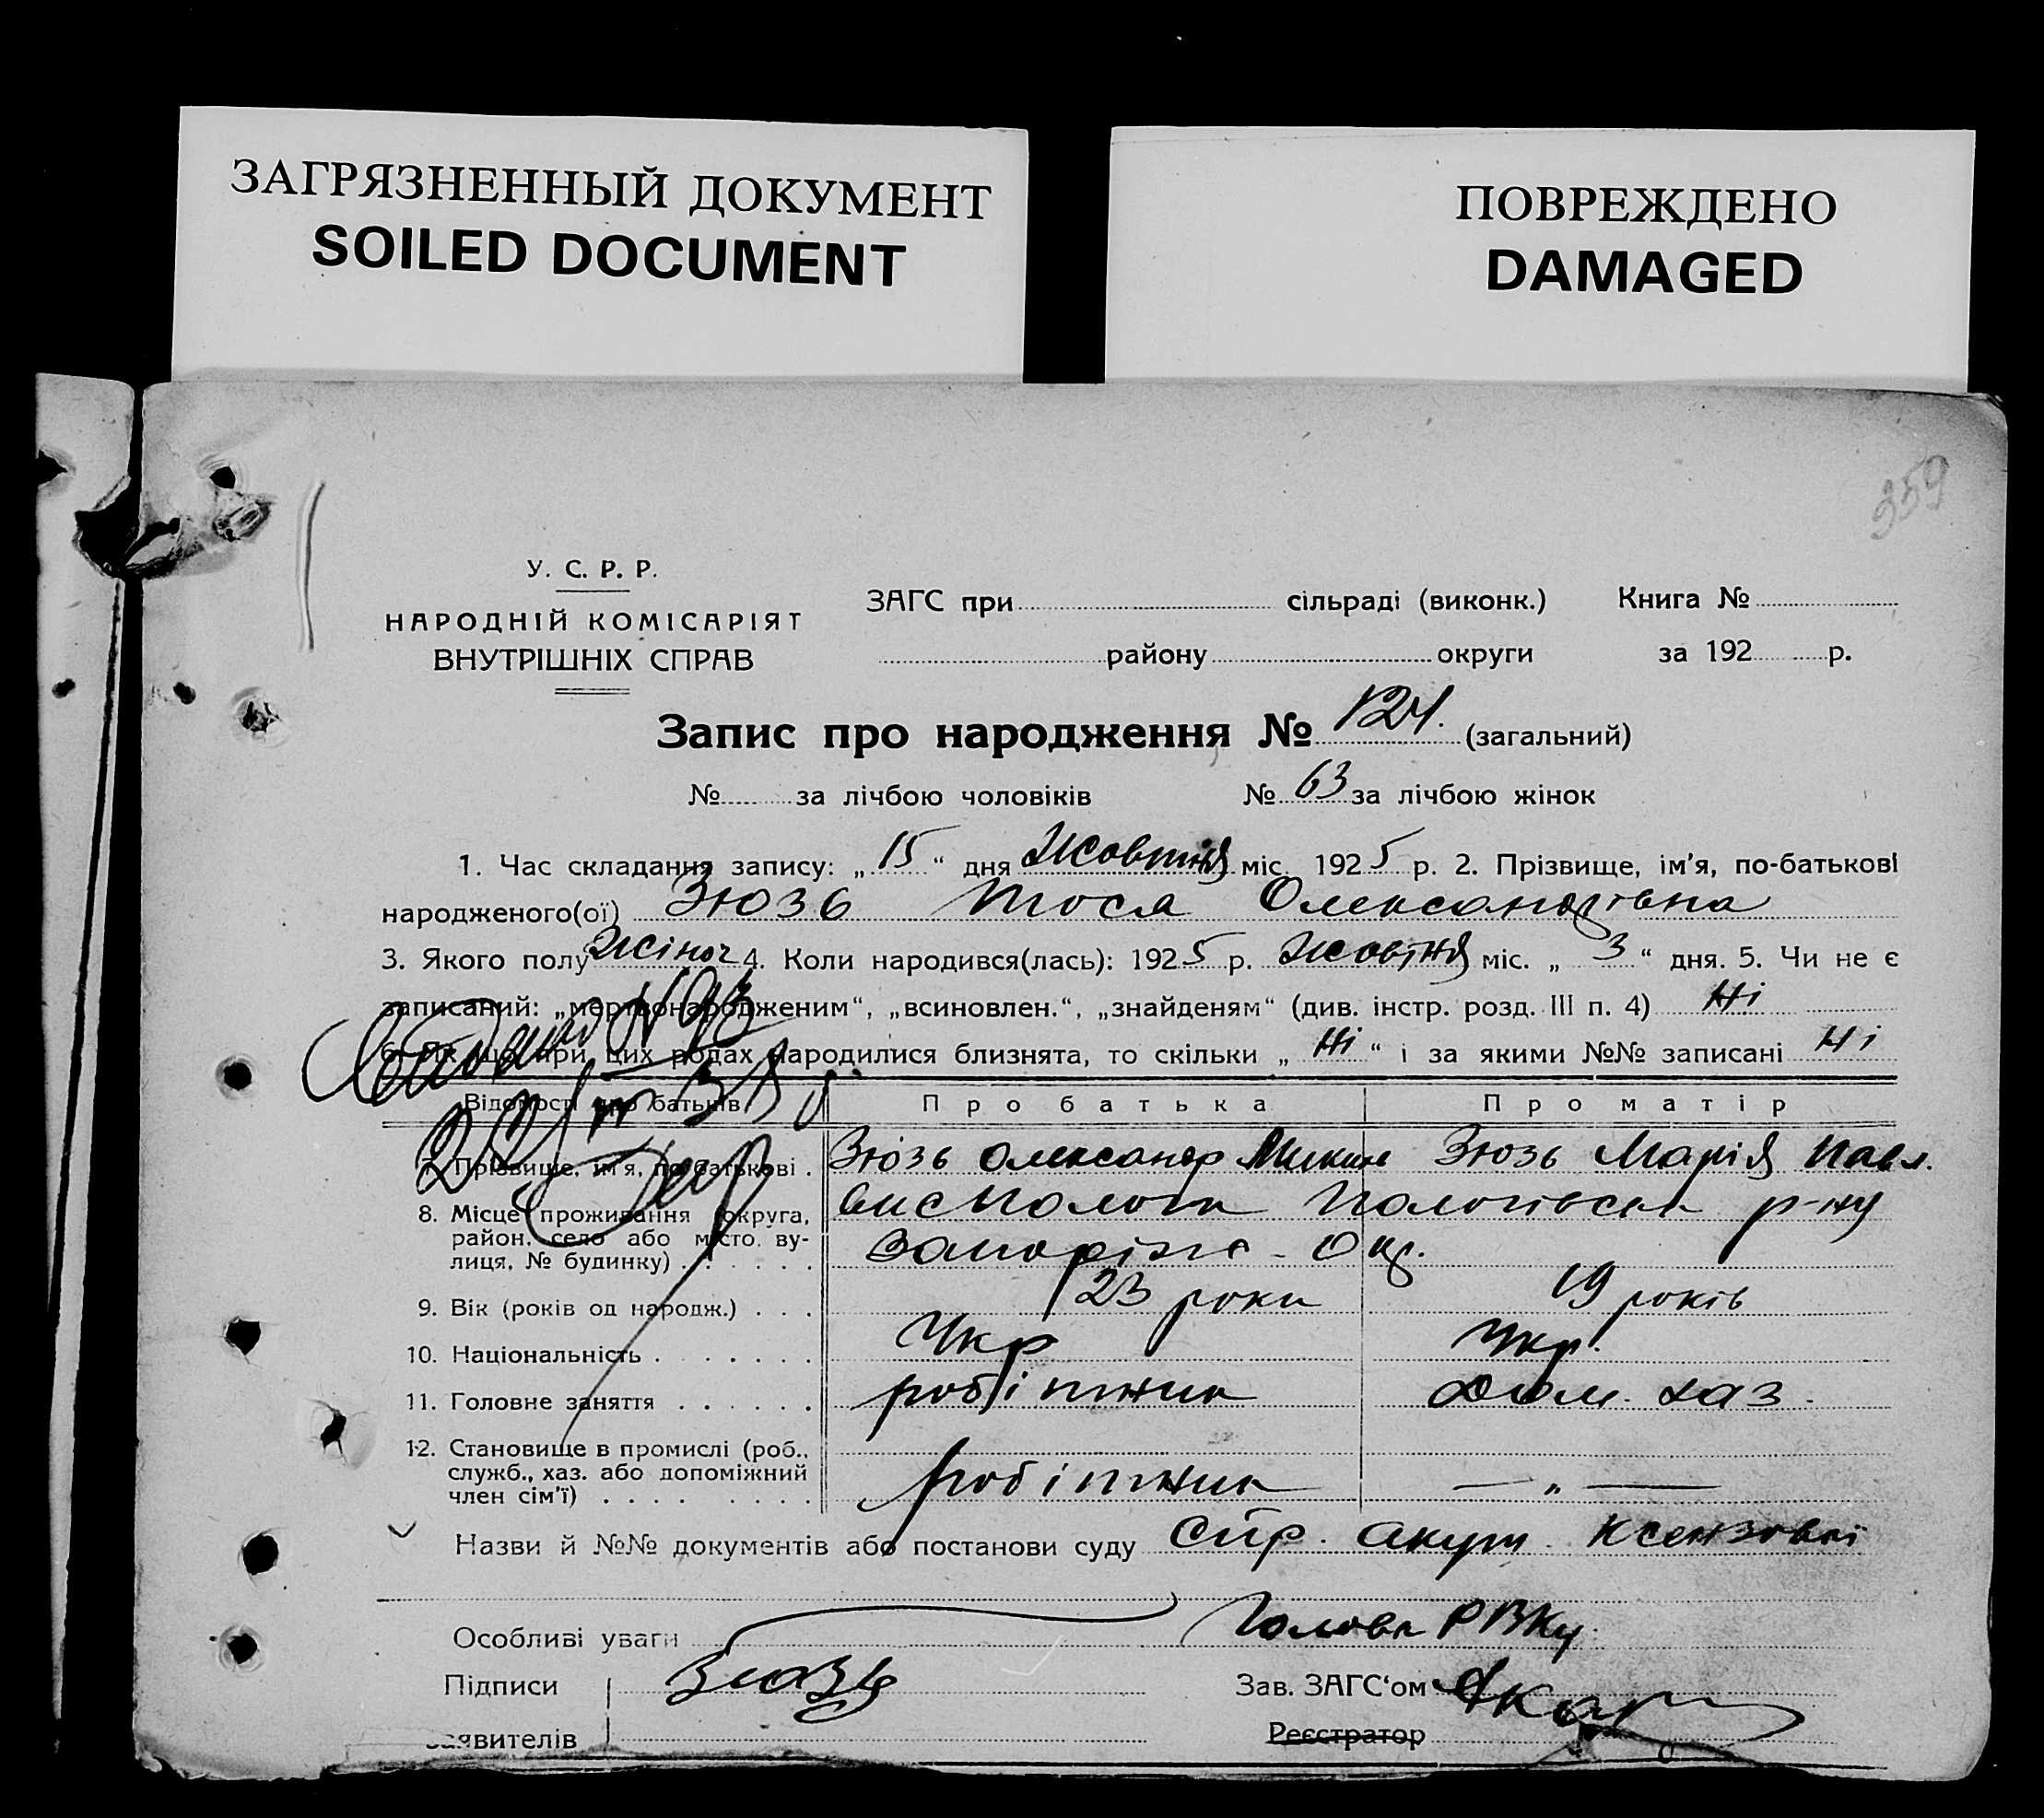 ЗАГРЯЗНЕННЫЙ ДОКУМЕНТ
SOILED DOCUMENT
ПОВРЕЖДЕНО
DAMAGED
359
У. С. Р. Р.
НАРОДНІЙ КОМІСАРІЯТ
ВНУТРІШНІХ СПРАВ
ЗАГС при сільраді (виконк.) Книга №
району округи за 192 р.
Запис про народження № 124. (загальний)
№ за лічбою чоловіків № 63 за лічбою жінок
1. Час складання запису: „ 15 “ дня Жовтня міс. 1925 р. 2. Прізвище, ім'я, по-батькові
народженого(ої) Зюзь Тося Олександрівна
3. Якого полу жіноч 4. Коли народився(лась): 1925 р. Жовтня міс. „ 3 “ дня. 5. Чи не є
записаний: „мертвонародженим“, „всиновлен.“, „знайденям“ (див. інстр. розд. III п. 4) Ні
6. Як що при цих родах народилися близнята, то скільки „ Ні “ і за якими №№ записані Ні
N 93
Відомості про батьків Про батька Про матір
7. Прізвище, ім'я, по батькові . Зюзь Олександр Зюзь Марія Павл.
8. Місце проживання (округа,
район, село або місто, ву-
лиця, № будинку) . . . . . .
Пологи Пологівськ р-ну
Запоріжс - Окр.
9. Вік (років од народж.) . . . 23 роки 19 років
10. Національність . . . . . . . Укр Укр.
11. Головне заняття . . . . . . робітник Дом. хаз.
12. Становище в промислі (роб.,
служб., хаз. або допоміжний
член сім'ї) . . . . . . . . . робітник — „ —
Назви й №№ документів або постанови суду Спр. акуш. Ксензової
Особливі уваги Голова РВКу
Підписи Зюзь Зав. ЗАГС'ом
заявителів Реєстратор